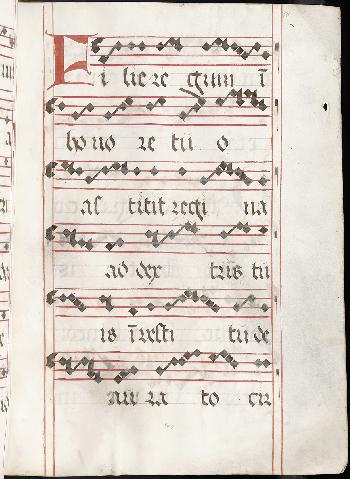 Filie regum ī
ho no re tu o
as titit regi na
ad dex tris tu
is ī vesti tu de
au ra to cir